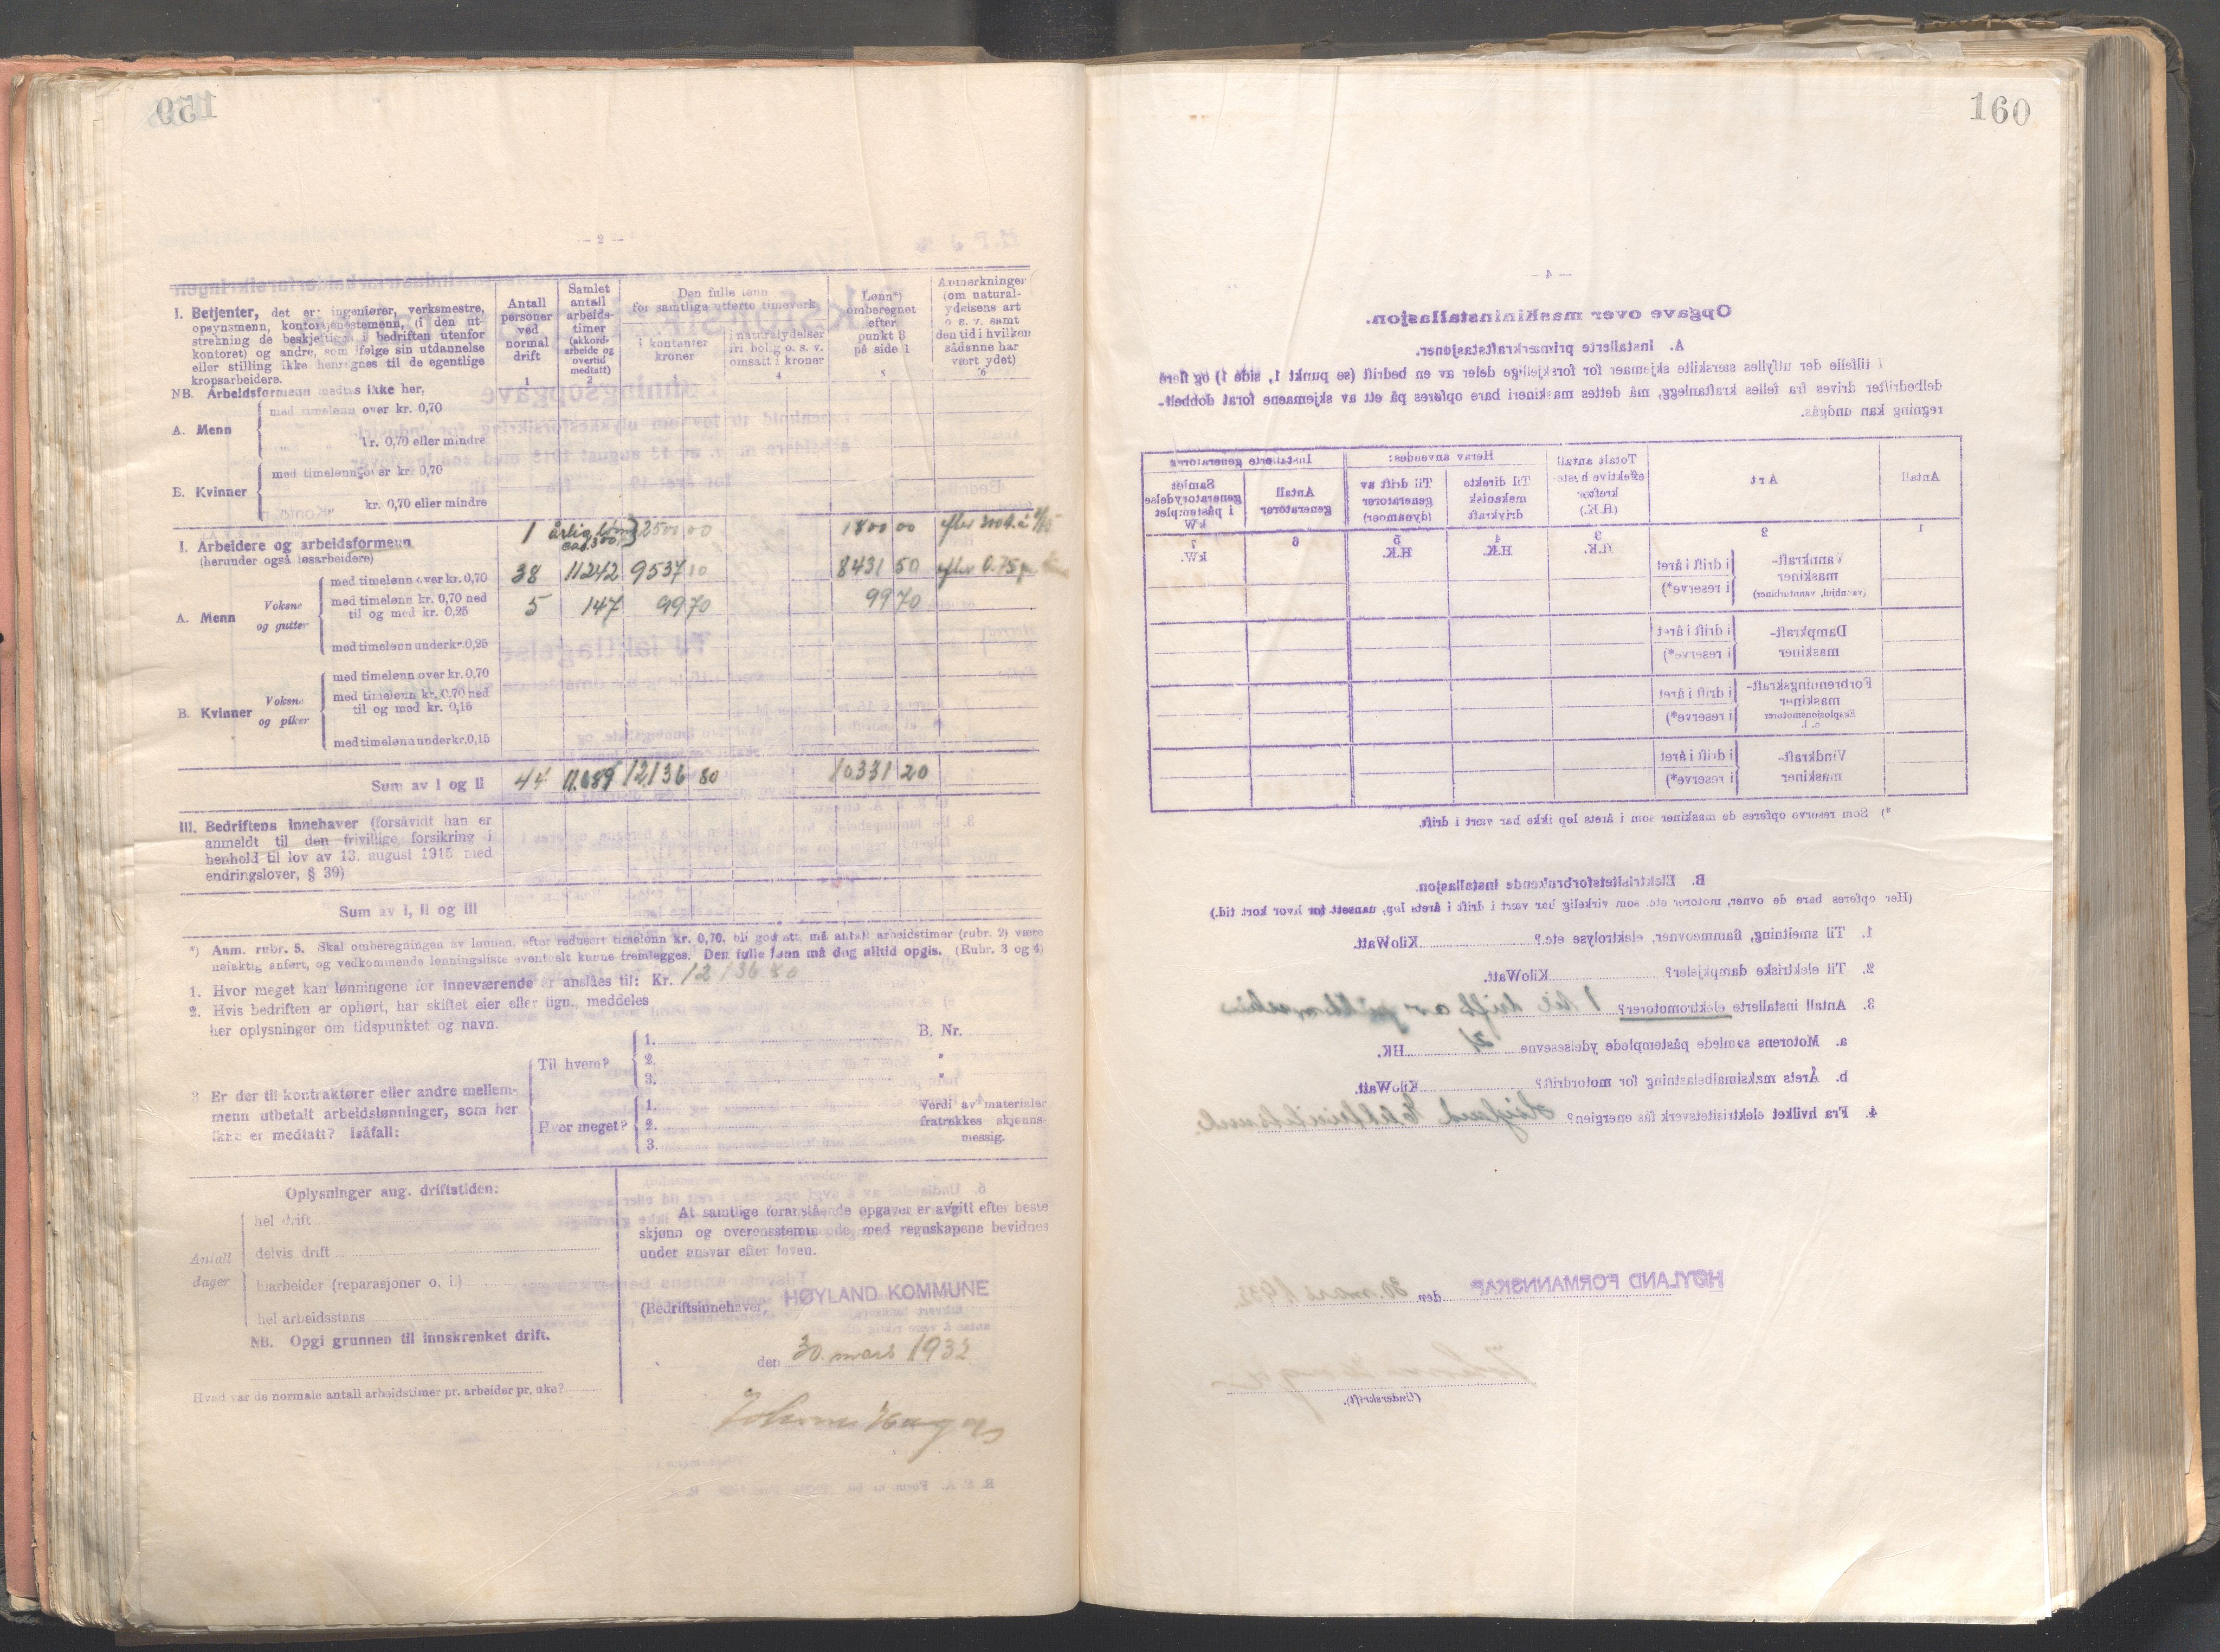 159
— 2 —
I. Betjenter, det er: ingeniører, verksmestre,
opsynsmenn, kontortjenestemenn, (i den ut-
strekning de beskjeftiges i bedriften utenfor
kontoret) og andre, som ifølge sin utdannelse
eller stilling ikke henregnes til de egentlige
kropsarbeidere.
NB. Arbeidsformenn medtas ikke her,
Antall
personer
ved
normal
drift
1
Samlet
antall
arbeids-
timer
(akkord-
arbeide og
overtid
medtatt)
2
Den fulle lønn
for samtlige utførte timeverk
i kontanter
kroner
i naturalydelser
fri bolig o. s. v.
omsatt i kroner
4
Lønn*)
omberegnet
efter
punkt B
på side 1
5
Anmerkninger
(om natural-
ydelsens art
o. s. v. samt
den tid i hvilken
sådanne har
vært ydet)
6
A. Menn
med timelønn over kr. 0,70
„ „ kr. 0,70 eller mindre
B. Kvinner
med timelønn over kr. 0,70
kr. 0,70 eller mindre
I. Arbeidere og arbeidsformenn
(herunder også løsarbeidere)
1 årlig lønn 2500 00 1800 00
A. Menn Voksne og gutter
med timelønn over kr. 0,70 38 11242 9537 10 8431 50 efter 0.75
med timelønn kr. 0,70 ned
til og med kr. 0,25 5 147 99 70 99 70
med timelønn under kr. 0,25
B. Kvinner Voksne og piker
med timelønn over kr. 0,70
med timelønn kr. 0,70 ned
til og med kr. 0,15
med timelønn under kr. 0,15
Sum av I og II 44 11.689 12136 80 10331 20
III. Bedriftens innehaver (forsåvidt han er
anmeldt til den frivillige forsikring i
henhold til lov av 13. august 1915 med
endringslover, § 39)
Sum av I, II og III
*) Anm. rubr. 5. Skal omberegningen av lønnen, efter redusert timelønn kr. 0,70, bli godtatt, må antall arbeidstimer (rubr. 2) være
nøiaktig anført, og vedkommende lønningsliste eventuelt kunne fremlegges. Den fulle lønn må dog alltid opgis. (Rubr. 3 og 4)
1. Hvor meget kan lønningene for inneværende år anslåes til: Kr. 12136 80
2. Hvis bedriften er ophørt, har skiftet eier eller lign., meddeles
her oplysninger om tidspunktet og navn.
3 Er der til kontraktører eller andre mellem-
menn utbetalt arbeidslønninger, som her
ikke er medtatt? Isåfall:
Til hvem?
1. B. Nr.
2. „
3. „
Hvor meget?
1.
2.
3.
Verdi av materialer
fratrekkes skjønns-
messig.
Oplysninger ang. driftstiden:
Antall
dager
hel drift
delvis drift
biarbeider (reparasjoner o. l.)
hel arbeidsstans
NB. Opgi grunnen til innskrenket drift.
Hvad var de normale antall arbeidstimer pr. arbeider pr. uke?
At samtlige foranstående opgaver er avgitt efter beste
skjønn og overensstemmende med regnskapene bevidnes
under ansvar efter loven.
(Bedriftsinnehaver, HØYLAND KOMMUNE
den 30. mars 1932
160
— 4 —
Opgave over maskininstallasjon.
A. Installerte primærkraftstasjoner.
I tilfelle der utfylles særskilte skjemaer for forskjellige deler av en bedrift (se punkt 1, side 1) og flere
delbedrifter drives fra felles kraftanlegg, må dettes maskineri bare opføres på ett av skjemaene forat dobbelt-
regning kan undgås.
Antall
1
Art
2
Totalt antall
effektive heste-
krefter
(H.K.)
3
H.K.
Herav anvendes:
Til direkte
mekanisk
drivkraft
4
H.K.
Til drift av
generatorer
(dynamoer)
5
H.K.
Installerte generatorer
Antall
generatorer
6
Samlet
generatorydelse
i påstemplet
kW
7
kW.
Vannkraft-
maskiner
(vannhjul, vannturbiner)
i drift i året
i reserve*)
Dampkraft-
maskiner
i drift i året
i reserve*)
Forbrenningskraft-
maskiner
Eksplosjonsmotorer
o. l.
i drift i året
i reserve*)
Vindkraft-
maskiner
i drift i året
i reserve*)
*) Som reserve opføres de maskiner som i årets løp ikke har vært i drift.
B. Elektrisitetsforbrukende installasjon.
(Her opføres bare de ovner, motorer etc. som virkelig har vært i drift i årets løp, uansett for hvor kort tid.)
1. Til smeltning, flammeovner, elektrolyse etc.? KiloWatt.
2. Til elektriske dampkjeler? KiloWatt.
3. Antall installerte elektromotorer? 1 til drift av
a. Motorens samlede påstemplede ydelsesevne 21 HK.
b. Årets maksimalbelastning for motordrift? KiloWatt.
4. Fra hvilket elektrisitetsverk fås energien? Høyland Elektrisitetsverk.
HØYLAND FORMANNSKAP den 30. mars 1932
(Underskrift).